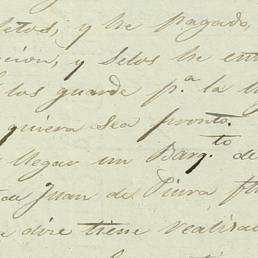 etos, y he pagado
cion, y Selos he en
los guarde p.ª la
quiera sea pronto.
llegar un Barq.to de
Juan de Piura
dice tiene realizad